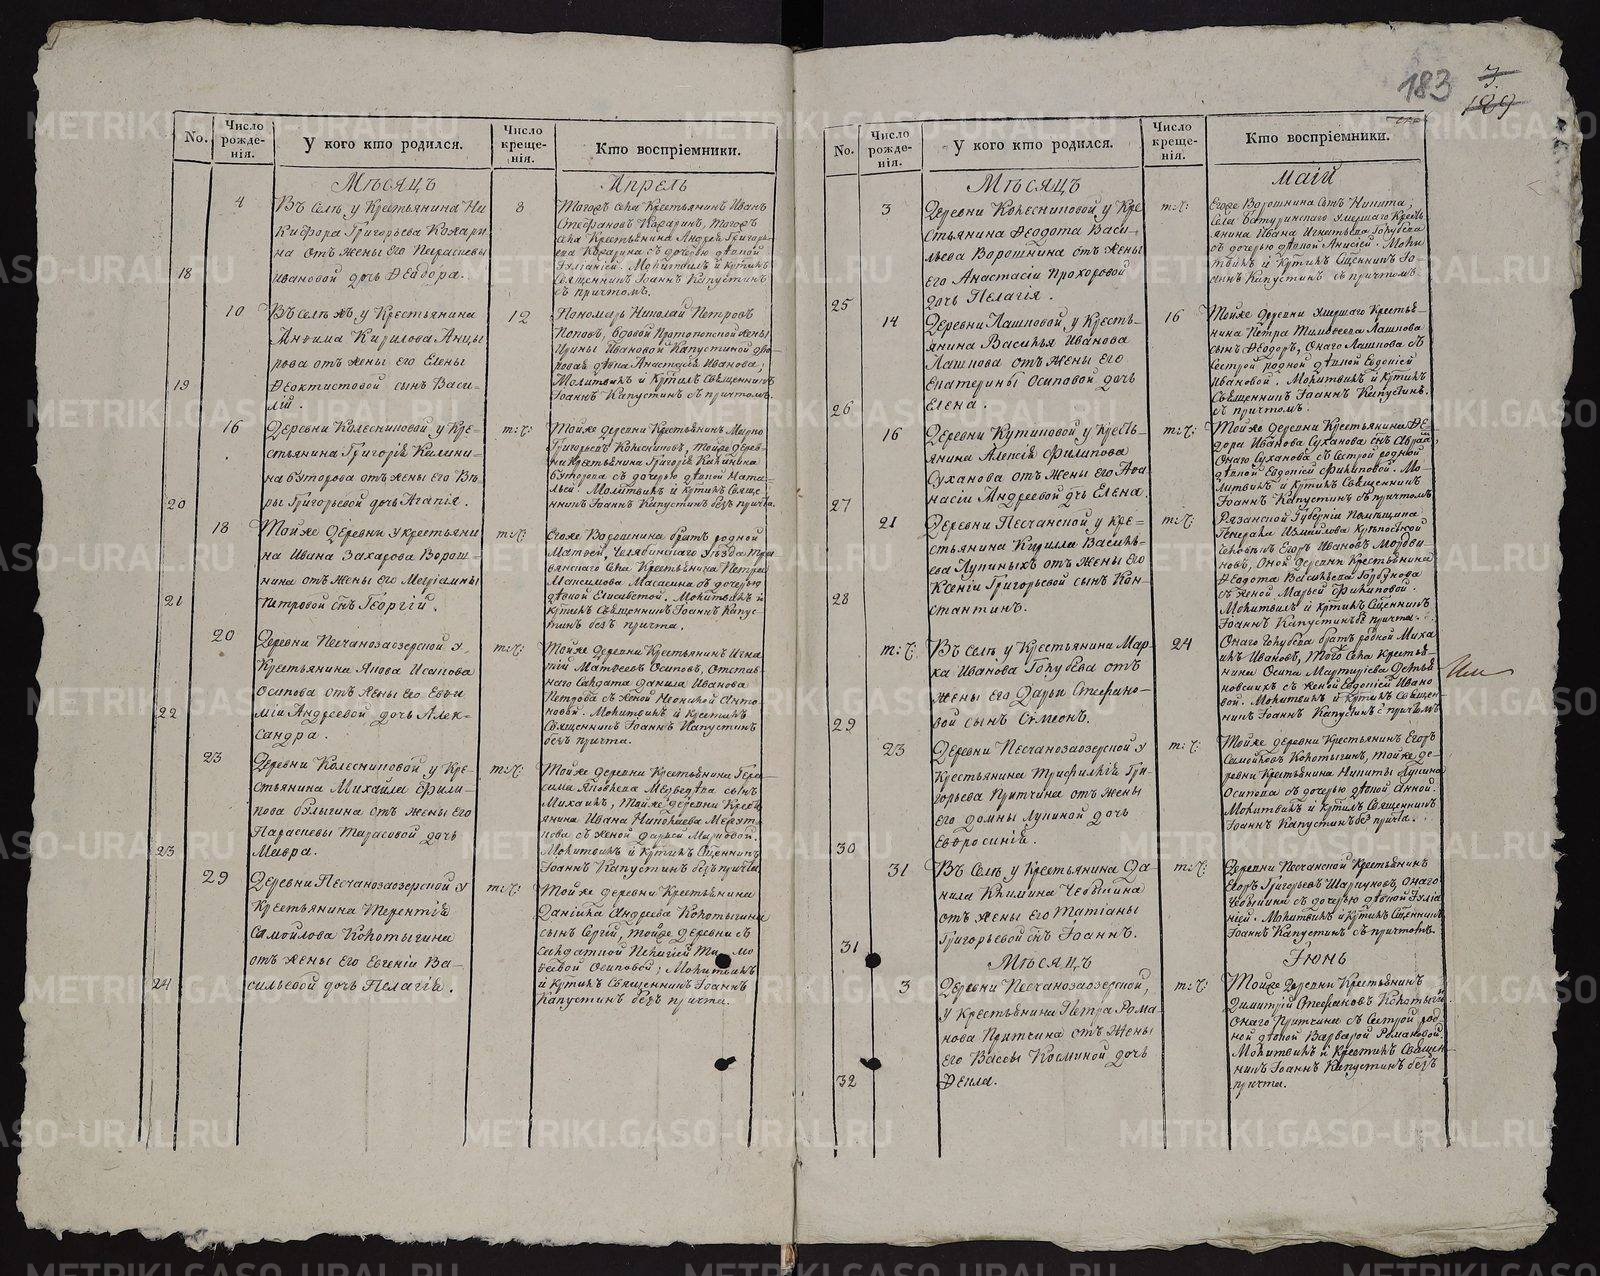 183
3
129
No.
Число рожде-нія.
У кого кто родился.
Число креще-нія.
Кто воспріемники.
Мѣсяцъ
Апрель
18
4
Въ Селѣ у Крестьянина Ни
кифора Григорьева Кокари
на отъ жены его Параскевы
Ивановой дочь Ѳеодора.
8
Тогожъ села Крестьянинъ Иванъ
Стефановъ Кокаринъ, тогожъ
села Крестьянина Андрея Григорь-
ева Кокарина съ дочерью дѣвкой
Іуліаніей. Молитвилъ и крѣтилъ
Священникъ Іоаннъ Капустинъ
съ причтомъ.
19
10
Въ селѣ жъ, у Крестьянина
Анѳима Кирилова Анцы
рова отъ жены его Елены
Ѳеоктистовой сынъ Васи-
лій.
12
Пономарь Николай Петровъ
Поповъ, вдовой Протопопской жены
Ирины Ивановой Капустиной дво-
ровая дѣвка Анастасія Иванова;
Молитвилъ и крѣтилъ Священникъ
Іоаннъ Капустинъ съ причтомъ.
20
16
Деревни Колесниковой у Кре-
стьянина Григорія Калини-
на Буторова отъ жены его Вѣ-
ры Григорьевой дочь Агапія.
т:ч:
Тойже деревни Крестьянинъ Мирно
Григорьевъ Колесниковъ, тойже дерев-
ни Крестьянина Григорія Калинина
Буторова съ дочерью дѣвкой Ната-
льей. Молитвилъ и крѣтилъ Свяще-
нникъ Іоаннъ Капустинъ безъ причта.
21
18
Тойже деревни у крестьяни
на Ивана Захарова Ворош-
нина отъ жены его Маріамны
Петровой снъ Георгій.
т:ч:
Егоже Ворошнина братъ родной
Матвей, Челябинскаго уѣзда
села Крестьянина Петра
Максимова съ дочерью
дѣвкой Елисаветой. Молитвилъ и
крѣтилъ Священникъ Іоаннъ Капус-
тинъ безъ причта.
22
20
Деревни Песчанозаозерской у
Крестьянина Якова Исакова
Осипова отъ жены его Евѳи
міи Андреевой дочь Алек-
сандра.
т:ч:
Тойже деревни Крестьянинъ Игна
тій Матвеевъ Осиповъ, отстав-
наго Салдата Данила Иванова
Петрова съ женой Неонилой Анто
новой. Молитвилъ и крестилъ
Священникъ Іоаннъ Капустинъ
безъ причта.
23
23
Деревни Колесниковой у Кре-
стьянина Михайла Фили-
пова Булыгина отъ жены его
Параскевы Тарасовой дочь
Мавра.
т:ч:
Тойже деревни Крестьянина Гера-
сима Яковлева сынъ
Михаилъ, тойже деревни Крестъ
янина Ивана
съ женой Дарьей Марковой.
Молитвилъ и крѣтилъ Сщенникъ
Іоаннъ Капустинъ безъ причта
24
29
Деревни Песчанозаозерской у
Крестьянина Терентія
Самойлова Колотыгина
отъ жены его Евгеніи Ва-
сильевой дочь Пелагія.
т:ч:
Тойже деревни Крестьянина
Даніила Андреева Колотыгина
сынъ Сергій, тойже деревни съ
Салдаткой Пелагіей
Осиповой; Молитвилъ
и крѣтилъ Священникъ Іоаннъ
Капустинъ безъ причта.
No.
Число рожде-нія.
У кого кто родился.
Число креще-нія.
Кто воспріемники.
Мѣсяцъ
Маій
25
3
Деревни Колесниковой у Кре
стьянина Ѳеодота Васи-
льева Ворошнина отъ жены
его Анастасіи Прохоровой
дочь Пелагія.
т:ч:
Егоже Ворошнина сынъ Никита;
села Батуринскаго умершаго Кресть
янина Ивана Игнатьева Голубева
съ дочерью дѣвкой Анисіей. Моли
твилъ и крѣтилъ Сщенникъ Іо-
аннъ Капустинъ съ причтомъ.
26
14
Деревни Лашковой, у Кресть-
янина Василья Иванова
Лашкова отъ жены его
Екатерины Осиповой дочь
Елена.
16
Тойже деревни умершаго Крестья
нина Петра Тимофеева Лашкова
сынъ Ѳеодоръ, онаго Лашкова съ
сестрой родной дѣвкой Евдокіей
Ивановой. Молитвилъ и крѣтилъ
Священникъ Іоаннъ Капустинъ.
съ причтомъ.
27
16
Деревни Кутиковой у Кресть-
янина Алексія Филипова
Суханова отъ жены его Аѳа
насіи Андреевой дчь Елена.
т:ч:
Тойже деревни Крестьянина Ѳе-
дора Иванова Суханова снъ Авраамъ,
онаго Суханова съ сестрой родной
дѣвкой Евдокіей Филиповой. Мо-
литвилъ и крѣтилъ Священникъ
Іоаннъ Капустинъ съ причтомъ
28
21
Деревни Песчанской у Кре-
стьянина Кирилла Василь-
ева Лукиныхъ отъ жены его
Ксеніи Григорьевой сынъ Кон-
стантинъ.
т:ч:
Рязанской Губерніи Помѣщика
Генерала Измайлова Крѣпостной
человѣкъ Егоръ Ивановъ Мордви-
новъ, оной деревни Крестьянина
Ѳедота Васильева
съ женой Марьей Филиповой.
Молитвилъ и крѣтилъ Сщенникъ
Іоаннъ Капустинъ безъ причта.
29
т:ч:
Въ Селѣ у Крестьянина Мар-
ка Иванова Голубева отъ
жены его Дарьи Стефано-
вой сынъ Симеонъ.
24
Онаго Голубева братъ родной Миха
илъ Ивановъ, того села Крестья-
нина Осипа Мартирiева
съ женой Евдокіей Ивано
вой. Молитвилъ и крѣтилъ Священ-
никъ Іоаннъ Капустинъ съ причтомъ
30
23
Деревни Песчанозаозерской у
Крестьянина Трифилія Гри-
горьева Притчина отъ жены
его Домны Лукиной дочь
Евфросинія.
т:ч:
Тойже деревни Крестьянинъ Егоръ
Самойловъ Колотыгинъ, тойже де-
ревни Крестьянина Никиты
Осипова съ дочерью дѣвкой Анной.
Молитвилъ и крѣтилъ Священникъ
Іоаннъ Капустинъ безъ причта.
31
31
Въ Селѣ у Крестьянина Да
нила Климина
отъ жены его Татіаны
Григорьевой снъ Іоаннъ.
т:ч:
Деревни Песчанской Крестьянинъ
Егоръ Григорьевъ Шаркуновъ, онаго
съ дочерью дѣвкой Іуліа
ніей. Молитвилъ и крѣтилъ Сщенникъ
Іоаннъ Капустинъ съ причтомъ.
Мѣсяцъ
Іюнь
32
3
Деревни Песчанозаозерской,
у Крестьянина Петра Рома
нова Притчина отъ жены
его Вассы Косминой дочь
Ѳекла.
т:ч:
Тойже деревни Крестьянинъ
Димитрій Стефановъ Колотыгинъ
онаго Притчина съ сестрой род-
ной дѣвкой Варварой Романовой
Молитвилъ и крестилъ Священ-
никъ Іоаннъ Капустинъ безъ
причта.
METRIKI.GASO-URAL.RU